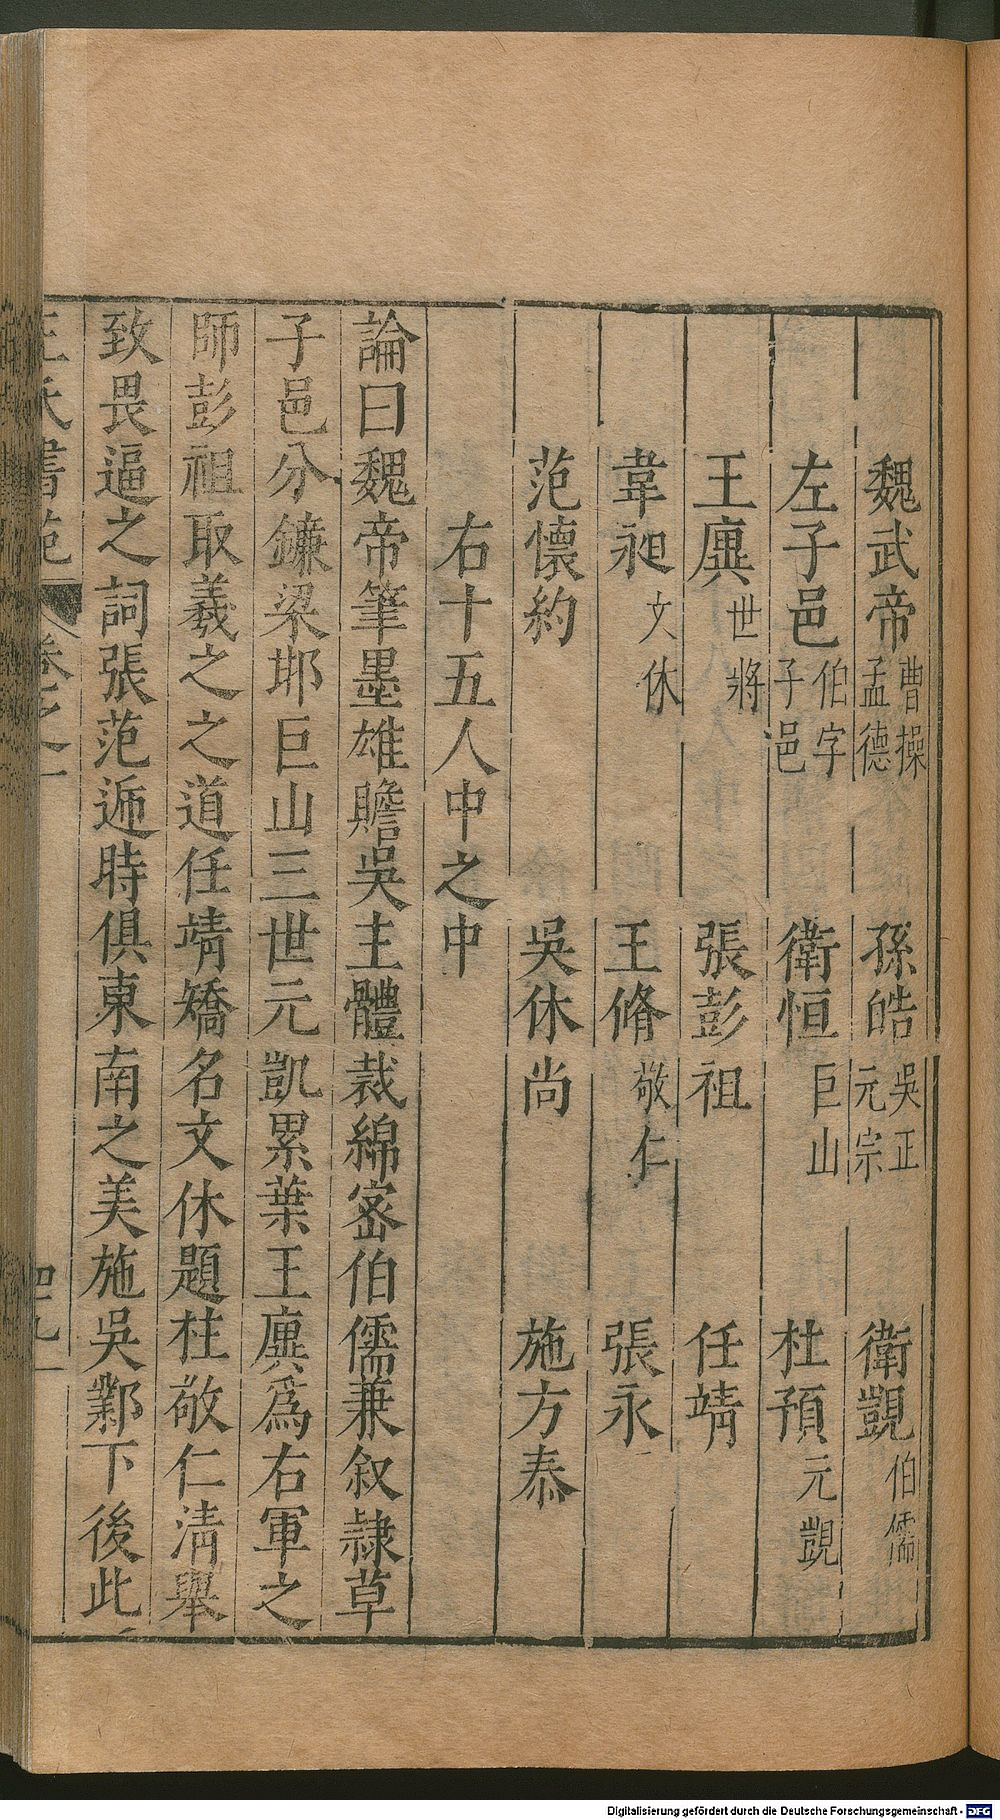 魏武帝曹操孟德 孫皓吳正元宗 衛覬伯儒
左子邑伯字子邑 衛恒巨山 杜預元凱
王廙世將 張彭祖 任靖
韋昶文休 王脩敬仁 張永
范懷約 吳休尚 施方泰
右十五人中之中
論曰魏帝筆墨雄贍吳主體裁綿密伯儒兼叙隷草
子邑分鑣梁邯巨山三世元凱累葉王廙爲右軍之
師彭祖取羲之之道任靖矯名文休題柱敬仁清舉
致畏逼之詞張范逓時俱東南之美施吳鄴下後此
王氏書苑 卷之一 四九
Digitalisierung gefördert durch die Deutsche Forschungsgemeinschaft - DFG